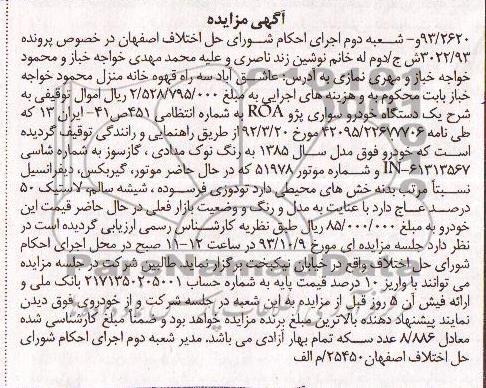 آگهی مزایده
۹۳/۲۶۲۰و- شعبه دوم اجرای احکام شورای حل اختلاف اصفهان در خصوص پرونده
۳۰۲۲/۹۳ش ج/دوم له خانم نوشین زند ناصری و علیه محمد مهدی خواجه خباز و محمود
خواجه خباز و مهری نمازی به آدرس: عاشق آباد سه راه قهوه خانه منزل محمود خواجه
خباز بابت محکوم به و هزینه های اجرایی به مبلغ ۲/۵۲۸/۷۹۵/۰۰۰ ریال اموال توقیفی به
شرح یک دستگاه خودرو سواری پژو ROA به شماره انتظامی ۴۵۱ص۴۱- ایران ۱۳ که
طی نامه ۴۲۰۹۵/۲۲۶۷۷۰۶ مورخ ۹۲/۳/۲۰ از طریق راهنمایی و رانندگی توقیف گردیده
است که خودرو فوق مدل سال ۱۳۸۵ به رنگ نوک مدادی ، گازسوز به شماره شاسی
IN-۶۱۳۱۳۵۶۷ و شماره موتور ۵۱۹۷۸ که در حال حاضر موتور، گیربکس، دیفرانسیل
نسبتاً مرتبی بدنه خش های محیطی دارد تودوزی فرسوده ، شیشه سالم، لاستیک ۵۰
درصد عاج دارد با عنایت به مدل و رنگ و وضعیت بازار فعلی در حال حاضر قیمت این
خودرو به مبلغ ۸۵/۰۰۰/۰۰۰ ریال طبق نظریه کارشناس رسمی ارزیابی گردیده است در
نظر دارد جلسه مزایده ای مورخ ۹۳/۱۰/۹ در ساعت ۱۲-۱۱ صبح در محل اجرای احکام
شورای حل اختلاف واقع در خیابان نیکبخت برگزار نماید. طالبین شرکت در جلسه مزایده
می توانند با واریز ۱۰ درصد قیمت پایه به شماره حساب ۲۱۷۱۳۵۰۲۰۵۰۰۱ بانک ملی و
ارائه فیش آن ۵ روز قبل از مزایده به این شعبه در جلسه شرکت و از خودروی فوق دیدن
نمایند پیشنهاد دهنده بالاترین مبلغ برنده مزایده خواهد بود و ضمناً مبلغ کارشناسی شده
معادل ۸/۸۸۶ عدد سکه تمام بهار آزادی می باشد. مدیر شعبه دوم اجرای احکام شورای
حل اختلاف اصفهان۲۵۴۵۰/م الف
ParsNamadData